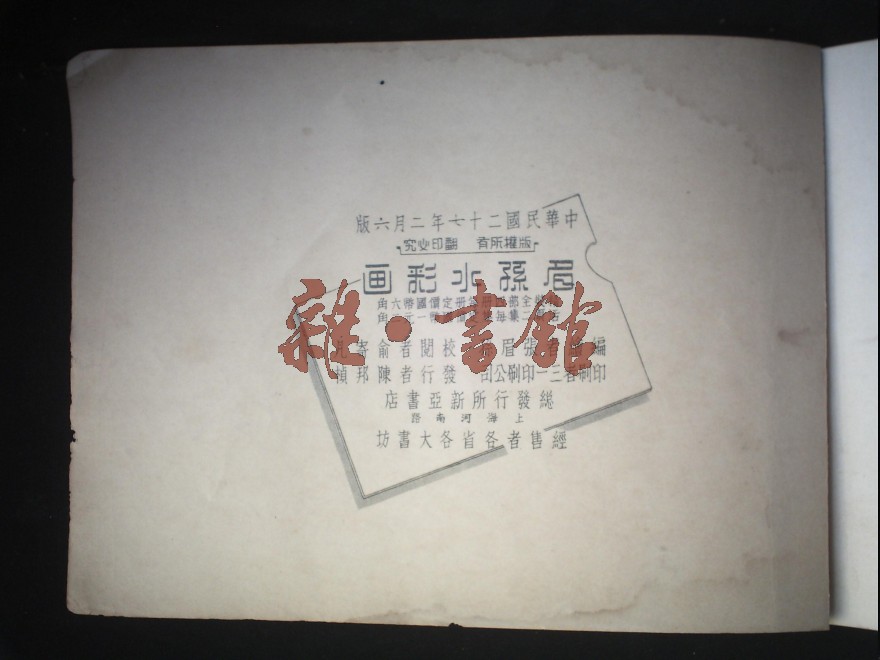 中華民國二十七年二月六版
版權所有 翻印必究
眉孫水彩画
全部 冊定價國幣六角
二集每 幣一元 角
編 者張眉 校閱者俞寄凡
印刷者三一印刷公司 發行者陳邦楨
總發行所新亞書店
上海河南路
經售者各省各大書坊
雜·書館